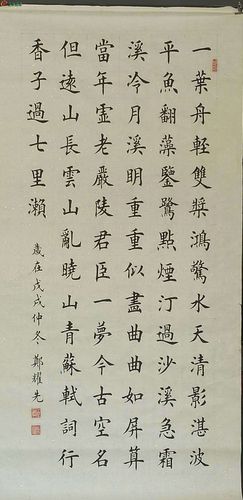 一葉舟輕雙槳鴻驚水天清影湛波
平魚翻藻鑒鷺點煙汀過沙溪急霜
溪冷月溪明重重似畫曲曲如屏算
當年虛老嚴陵君臣一夢今古空名
但遠山長雲山亂曉山青蘇軾詞行
香子過七里瀨
歲在戊戌仲冬鄭耀先